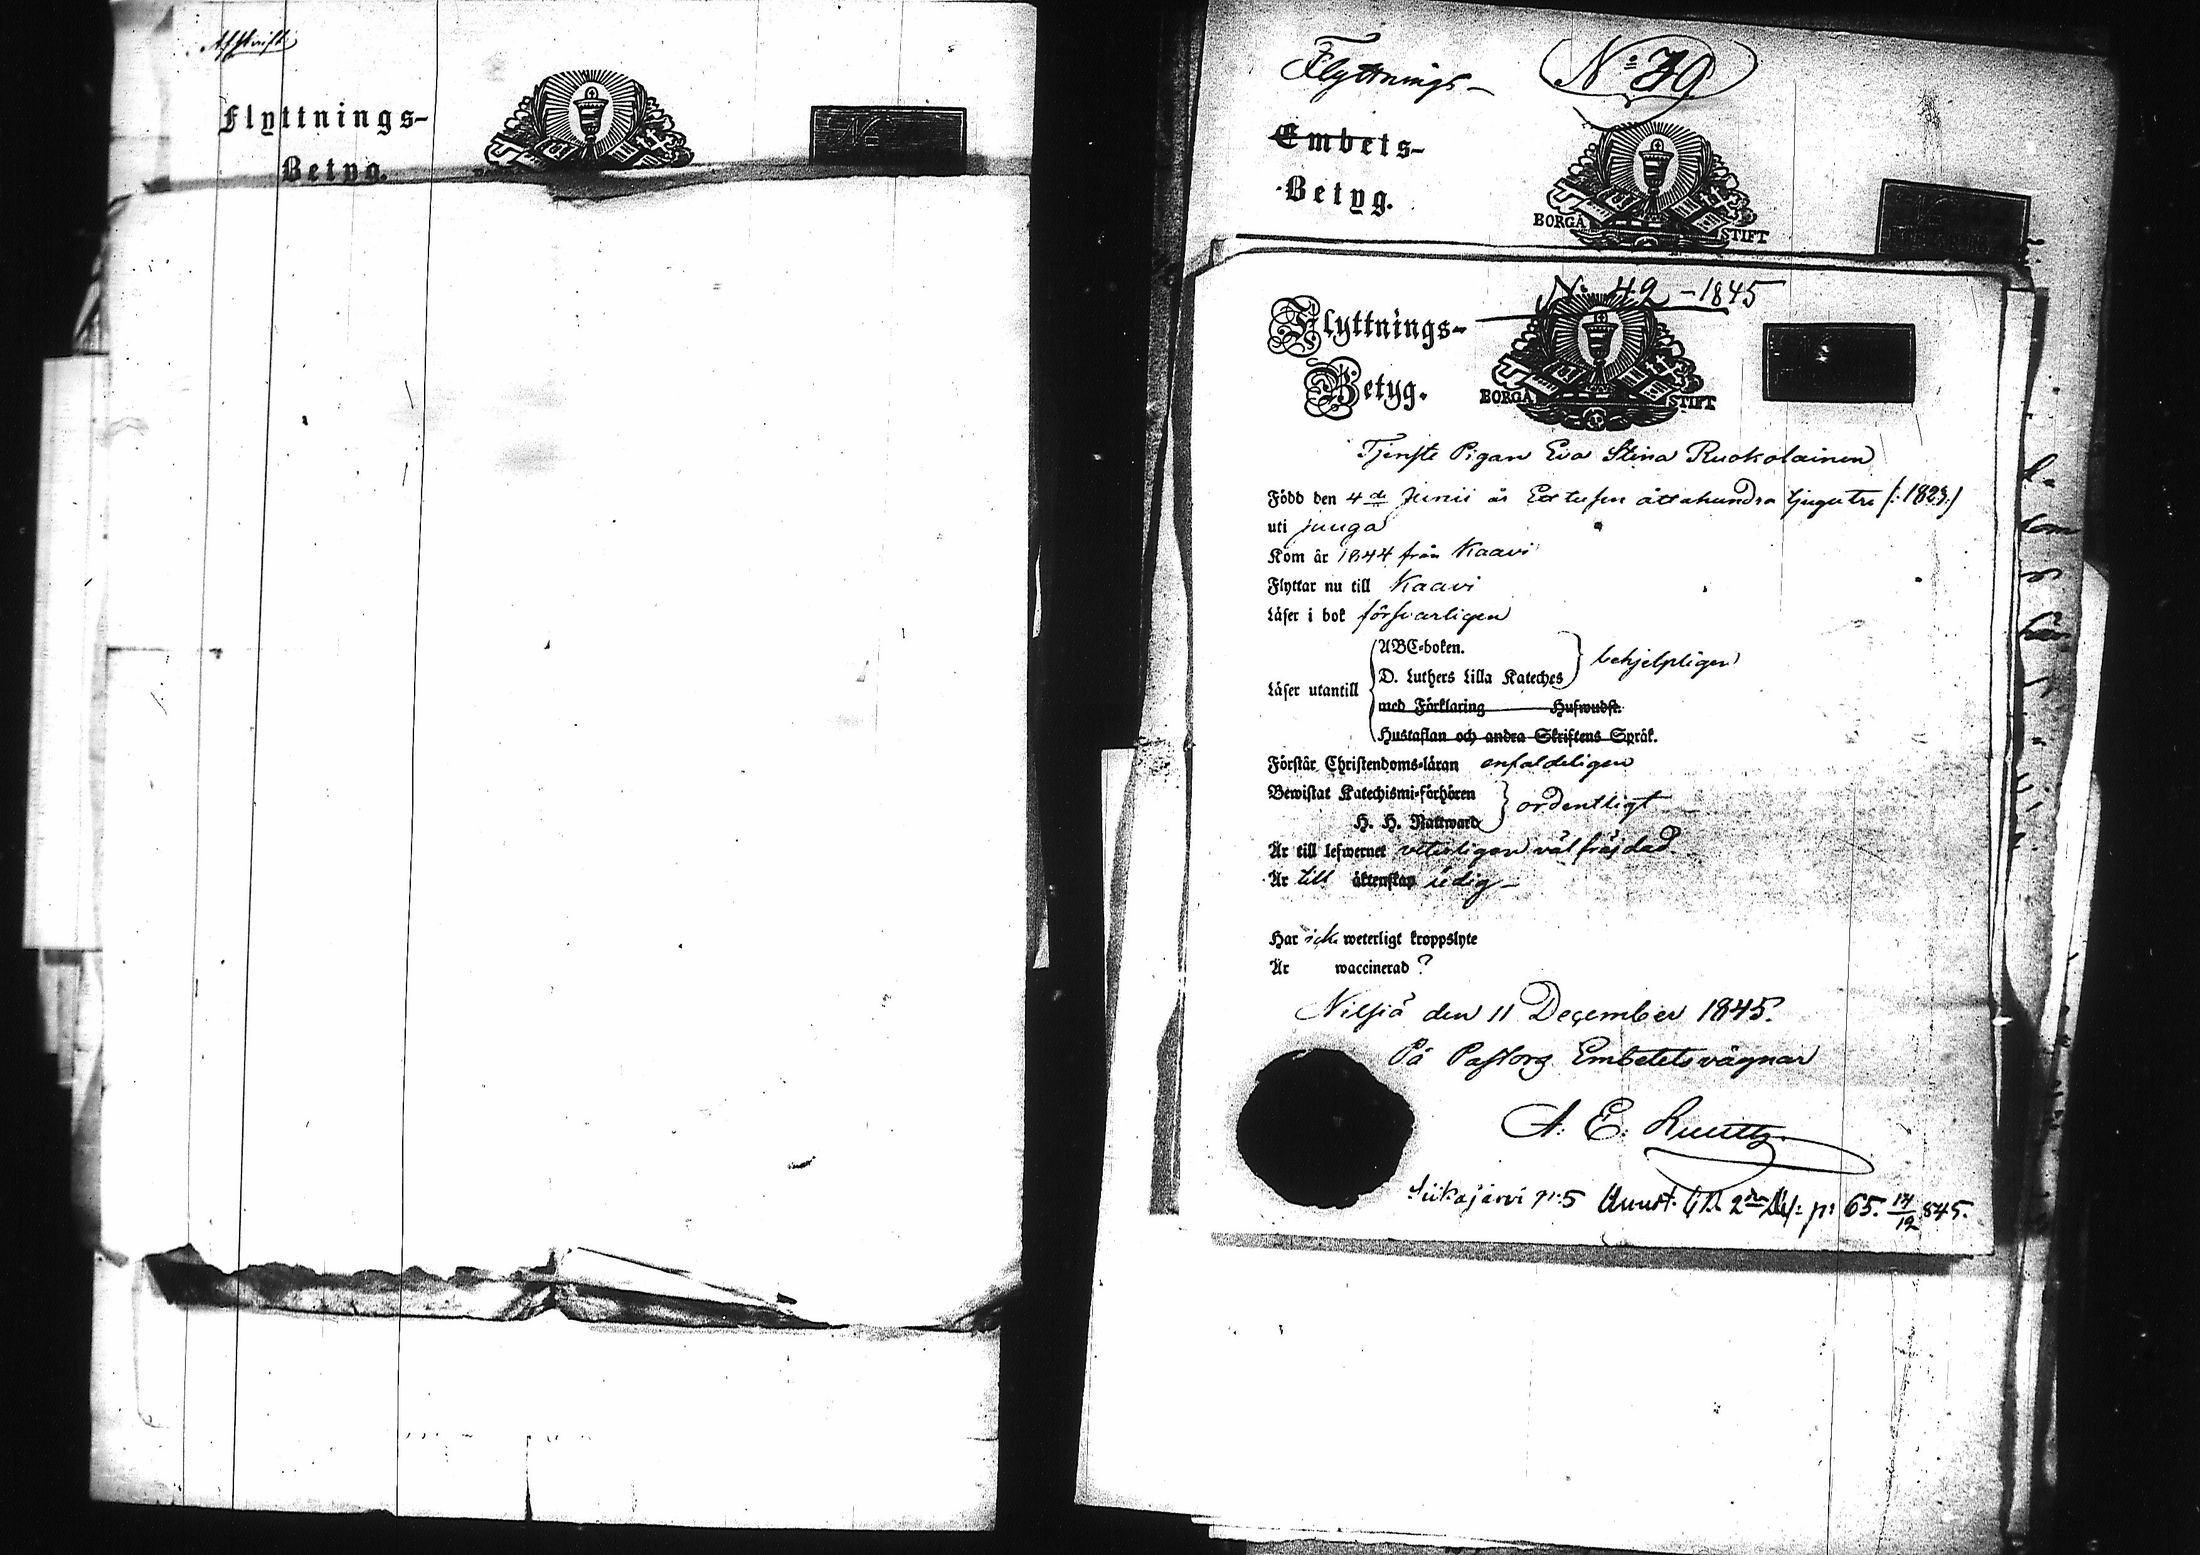 Afskrift
Flyttnings-
Betyg.
Flyttnings-
Embets-
Betyg.
BORGÅ STIFT
N: 42 - 1845
Flyttnings-
Betyg.
BORGÅ STIFT
Tjenste Pigan Eva Stina Ruokolainen
Född den 4de Junii år Ett tusen åttahundra tjugutre (: 1823:)
uti
Kom år 1844 från Kaavi
Flyttar nu till Kaavi
Läser i bok försvarligen
Läser utantill
ABC-boken.
D. Luthers Lilla Kateches
behjelpligen
med Förklaring Hufwudst.
Hustaflan och andra Skriftens Språk.
Förstår Christendoms-läran enfaldeligen
Bewistat Katechismi-förhören
H. H. Nattward
ordentligt
Är till lefwernet veterligen väl fräjdad
Är till äktenskap ledig -
Har icke weterligt kroppslyte
Är waccinerad ?
Nilsiä den 11 December 1845.
På Pastors Embetets vägnar
A. E.
Siikajärvi N:5 p: 65. 845.